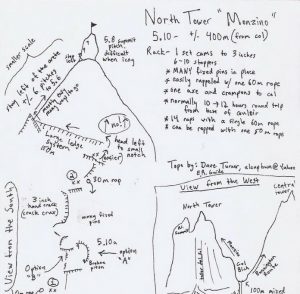 North Tower "Monzino"
5.10- +/- 400m (from col)
Rack- 1 set cams to 3 inches
6-10 stoppers
* MANY fixed pins in place
* easily rappeled w/ one 60m rope
* one axe and crampons to col
* normally 10 → 12 hours round trip
from base of couloir
* 14 raps with a single 60m rope
* can be rapped with one 50m rope
Topo by: Dave Turner,
smaller scale
stay left of the arete
+/- 6 pitches
5.8 summit
pitch,
difficult
when icey
large ledge
system
no!
head left
to small
notch
(easier)
30m rap
3 inch
hand crack
(crack crux)
many fixed
pins
5.10a
option
"A"
Broken
piton
Option
View from the South
View from the West
North Tower
central
tower
Monzino
Col Bich
100m mixed